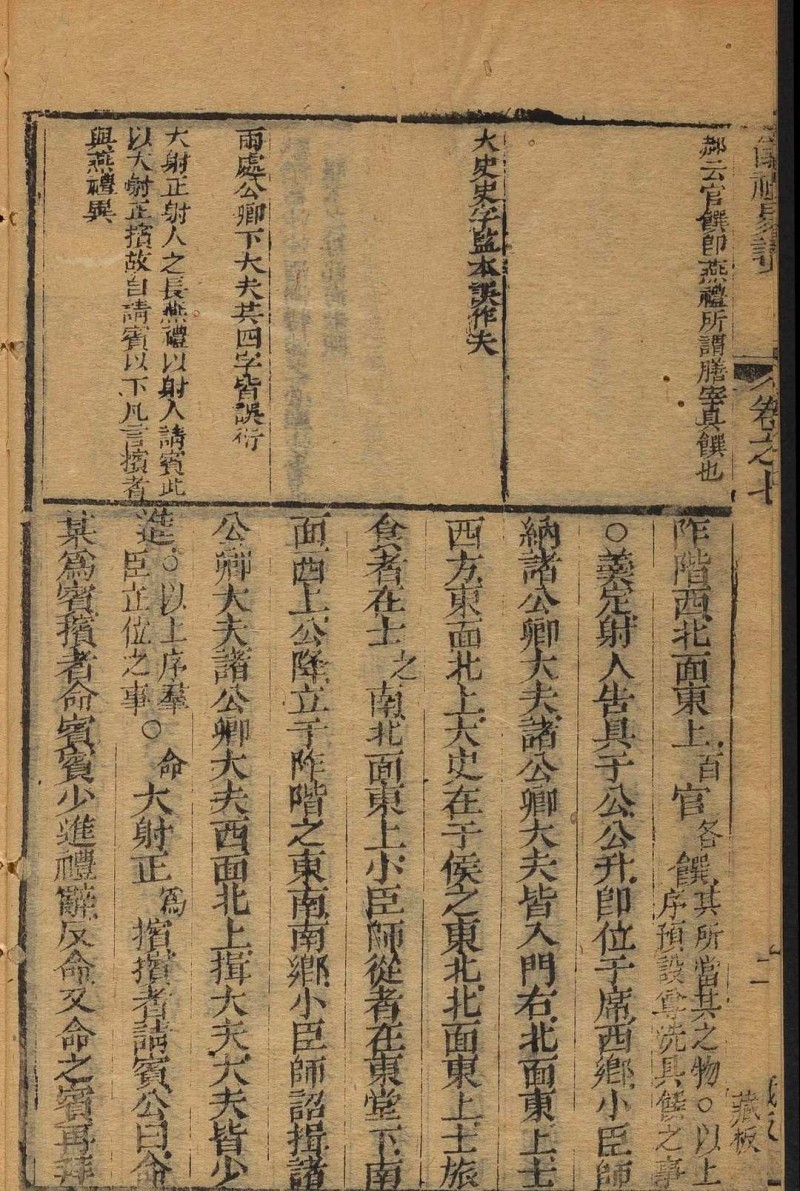 儀禮易讀
卷之七
二
藏板
郝云官饌卽燕禮所謂膳宰具饌也
大史史字監本誤作夫
兩處公卿下大夫其四字皆誤衍
大射正射人之長燕禮以射人請賓此
以大射正擯故自請賓以下凡言擯者
與燕禮異
阼階西北面東上百官各饌其所當共之物○以上序預設尊洗具饌之事
○羹定射人告具于公公升卽位于席西鄉小臣師
納諸公卿大夫諸公卿大夫皆入門右北面東上士
西方東面北上大史在于侯之東北北面東上士旅
食者在士之南北面東上小臣師從者在東堂下南
面西上公降立于阼階之東南南鄉小臣師詔揖諸
公卿大夫諸公卿大夫西面北上揖大夫大夫皆少
進○以上序羣臣立位之事○命大射正爲擯擯者請賓公曰命
某爲賓擯者命賓賓少進禮辭反命又命之賓再拜